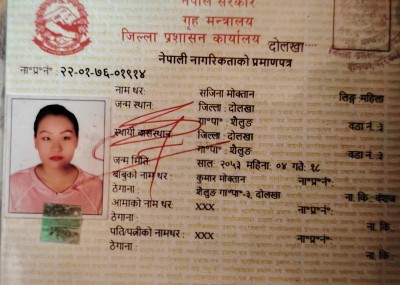 नेपाल सरकार
गृह मन्त्रालय
जिल्ला प्रशासन कार्यालय दोलखा
नेपाली नागरिकताको प्रमाणपत्र
ना॰प्र॰नं॰ : २२-०१-७६-०१९१४
नाम थर: सजिना मोक्तान लिङ्ग: महिला
जन्म स्थान: जिल्ला : दोलखा
गा॰पा॰: शैलुङ वडा नं. ३
स्थायी बासस्थान: जिल्ला : दोलखा
गा॰पा॰: शैलुङ वडा नं. ३
जन्म मिति: साल: २०५३ महिना: ०४ गते: १८
बाबुको नाम थर : कुमार मोक्तान ना॰प्र॰नं॰:
ठेगाना : शैलुङ गा॰पा॰-३, दोलखा ना. कि. वंशज
आमाको नाम थर: XXX ना॰प्र॰नं॰:
ठेगाना : ना. कि.
पति/पत्नीको नामथर: XXX ना॰प्र॰नं॰:
ठेगाना : ना. कि.